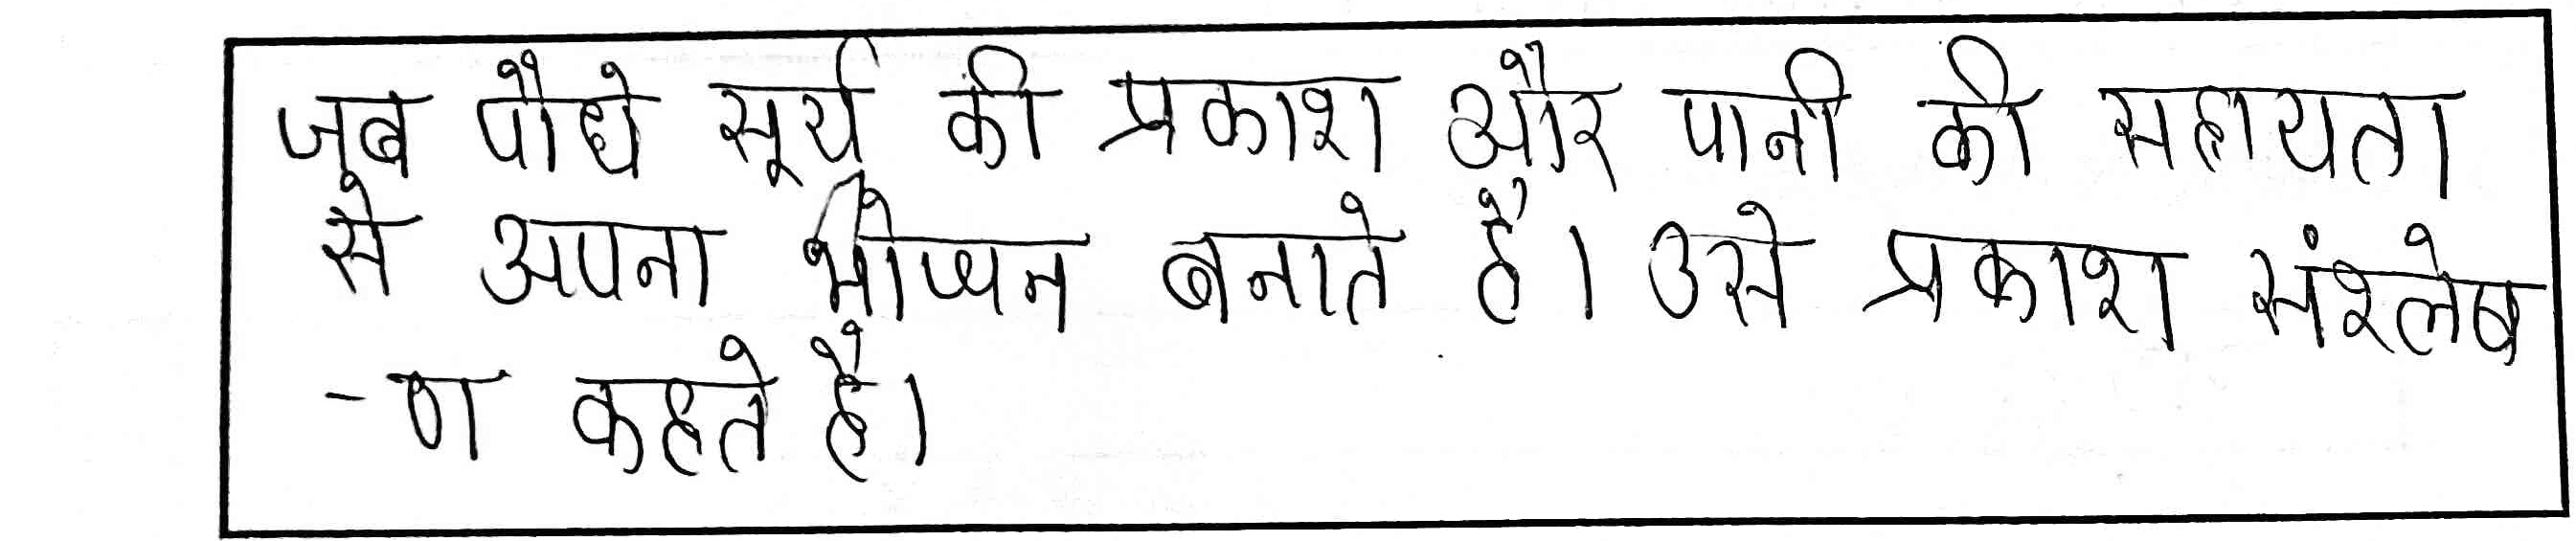 जब पौधे सूर्य की प्रकाश और पानी की सहायता
से अपना भोजन बनाते है। उसे प्रकाश संश्लेष
-ण कहते है।